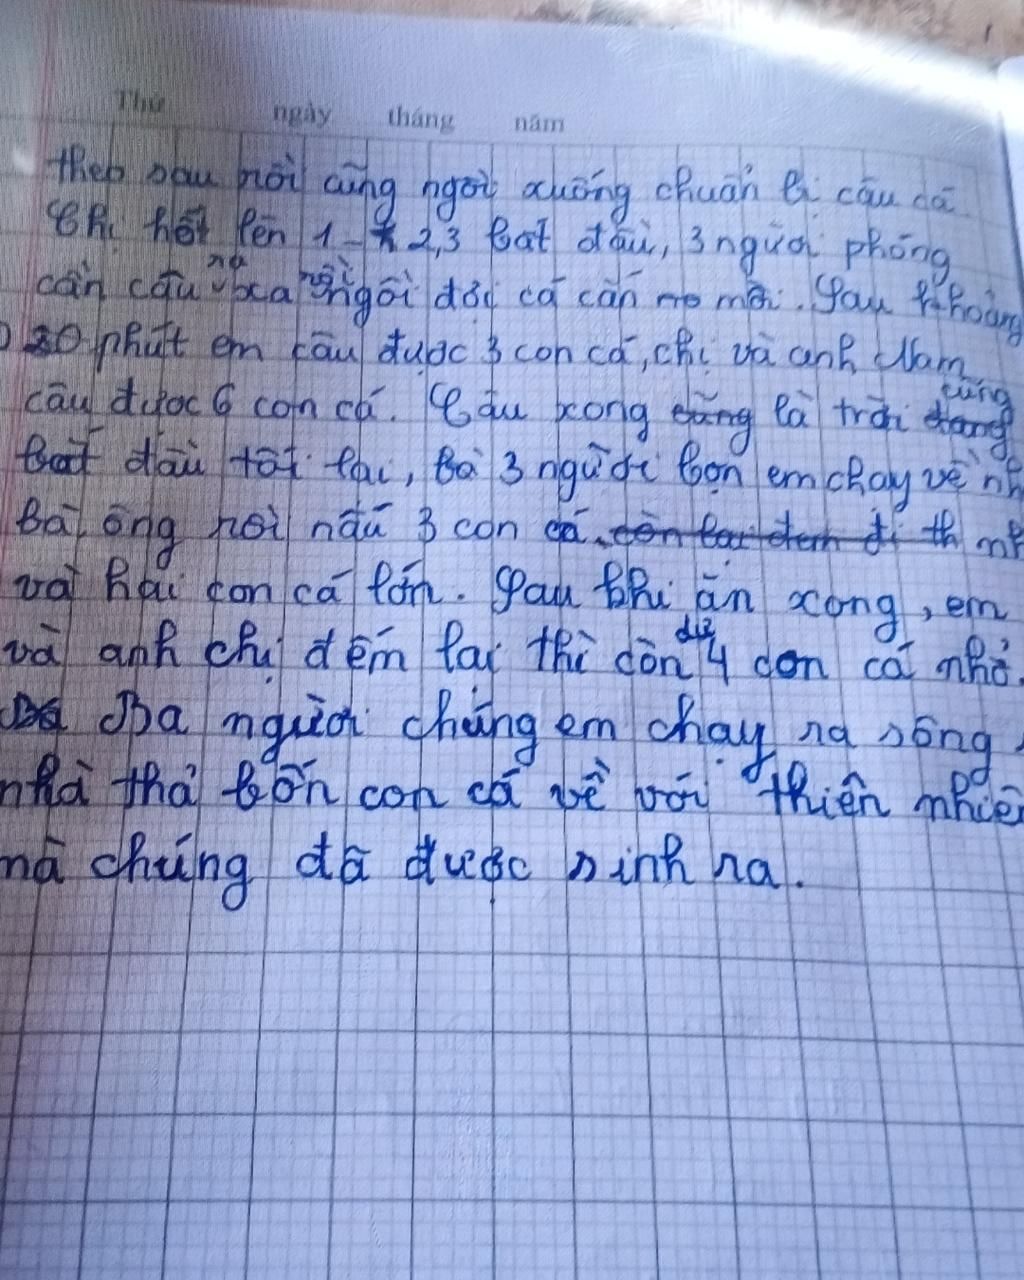 Thứ ngày tháng năm
theo sau rồi cũng ngồi xuống chuẩn bị câu cá
Chị hét lên 1-2,3 bắt đầu, 3 người phóng
cần câu ra xa rồi ngồi đợi cá cắn mồi. Sau khoảng
30 phút em câu được 3 con cá, chị và anh Nam
câu được 6 con cá. Câu xong là trời cũng
bắt đầu tối lại, Ba 3 người bọn em chạy về
bà, ông rồi nấu 3 con cá
và hai con cá lớn. Sau khi ăn xong, em
và anh chị đếm lại thì còn dư 4 con cá nhỏ.
Ba người chúng em chạy ra sông
nhà thả bốn con cá về với thiên nhiên
mà chúng đã được sinh ra.